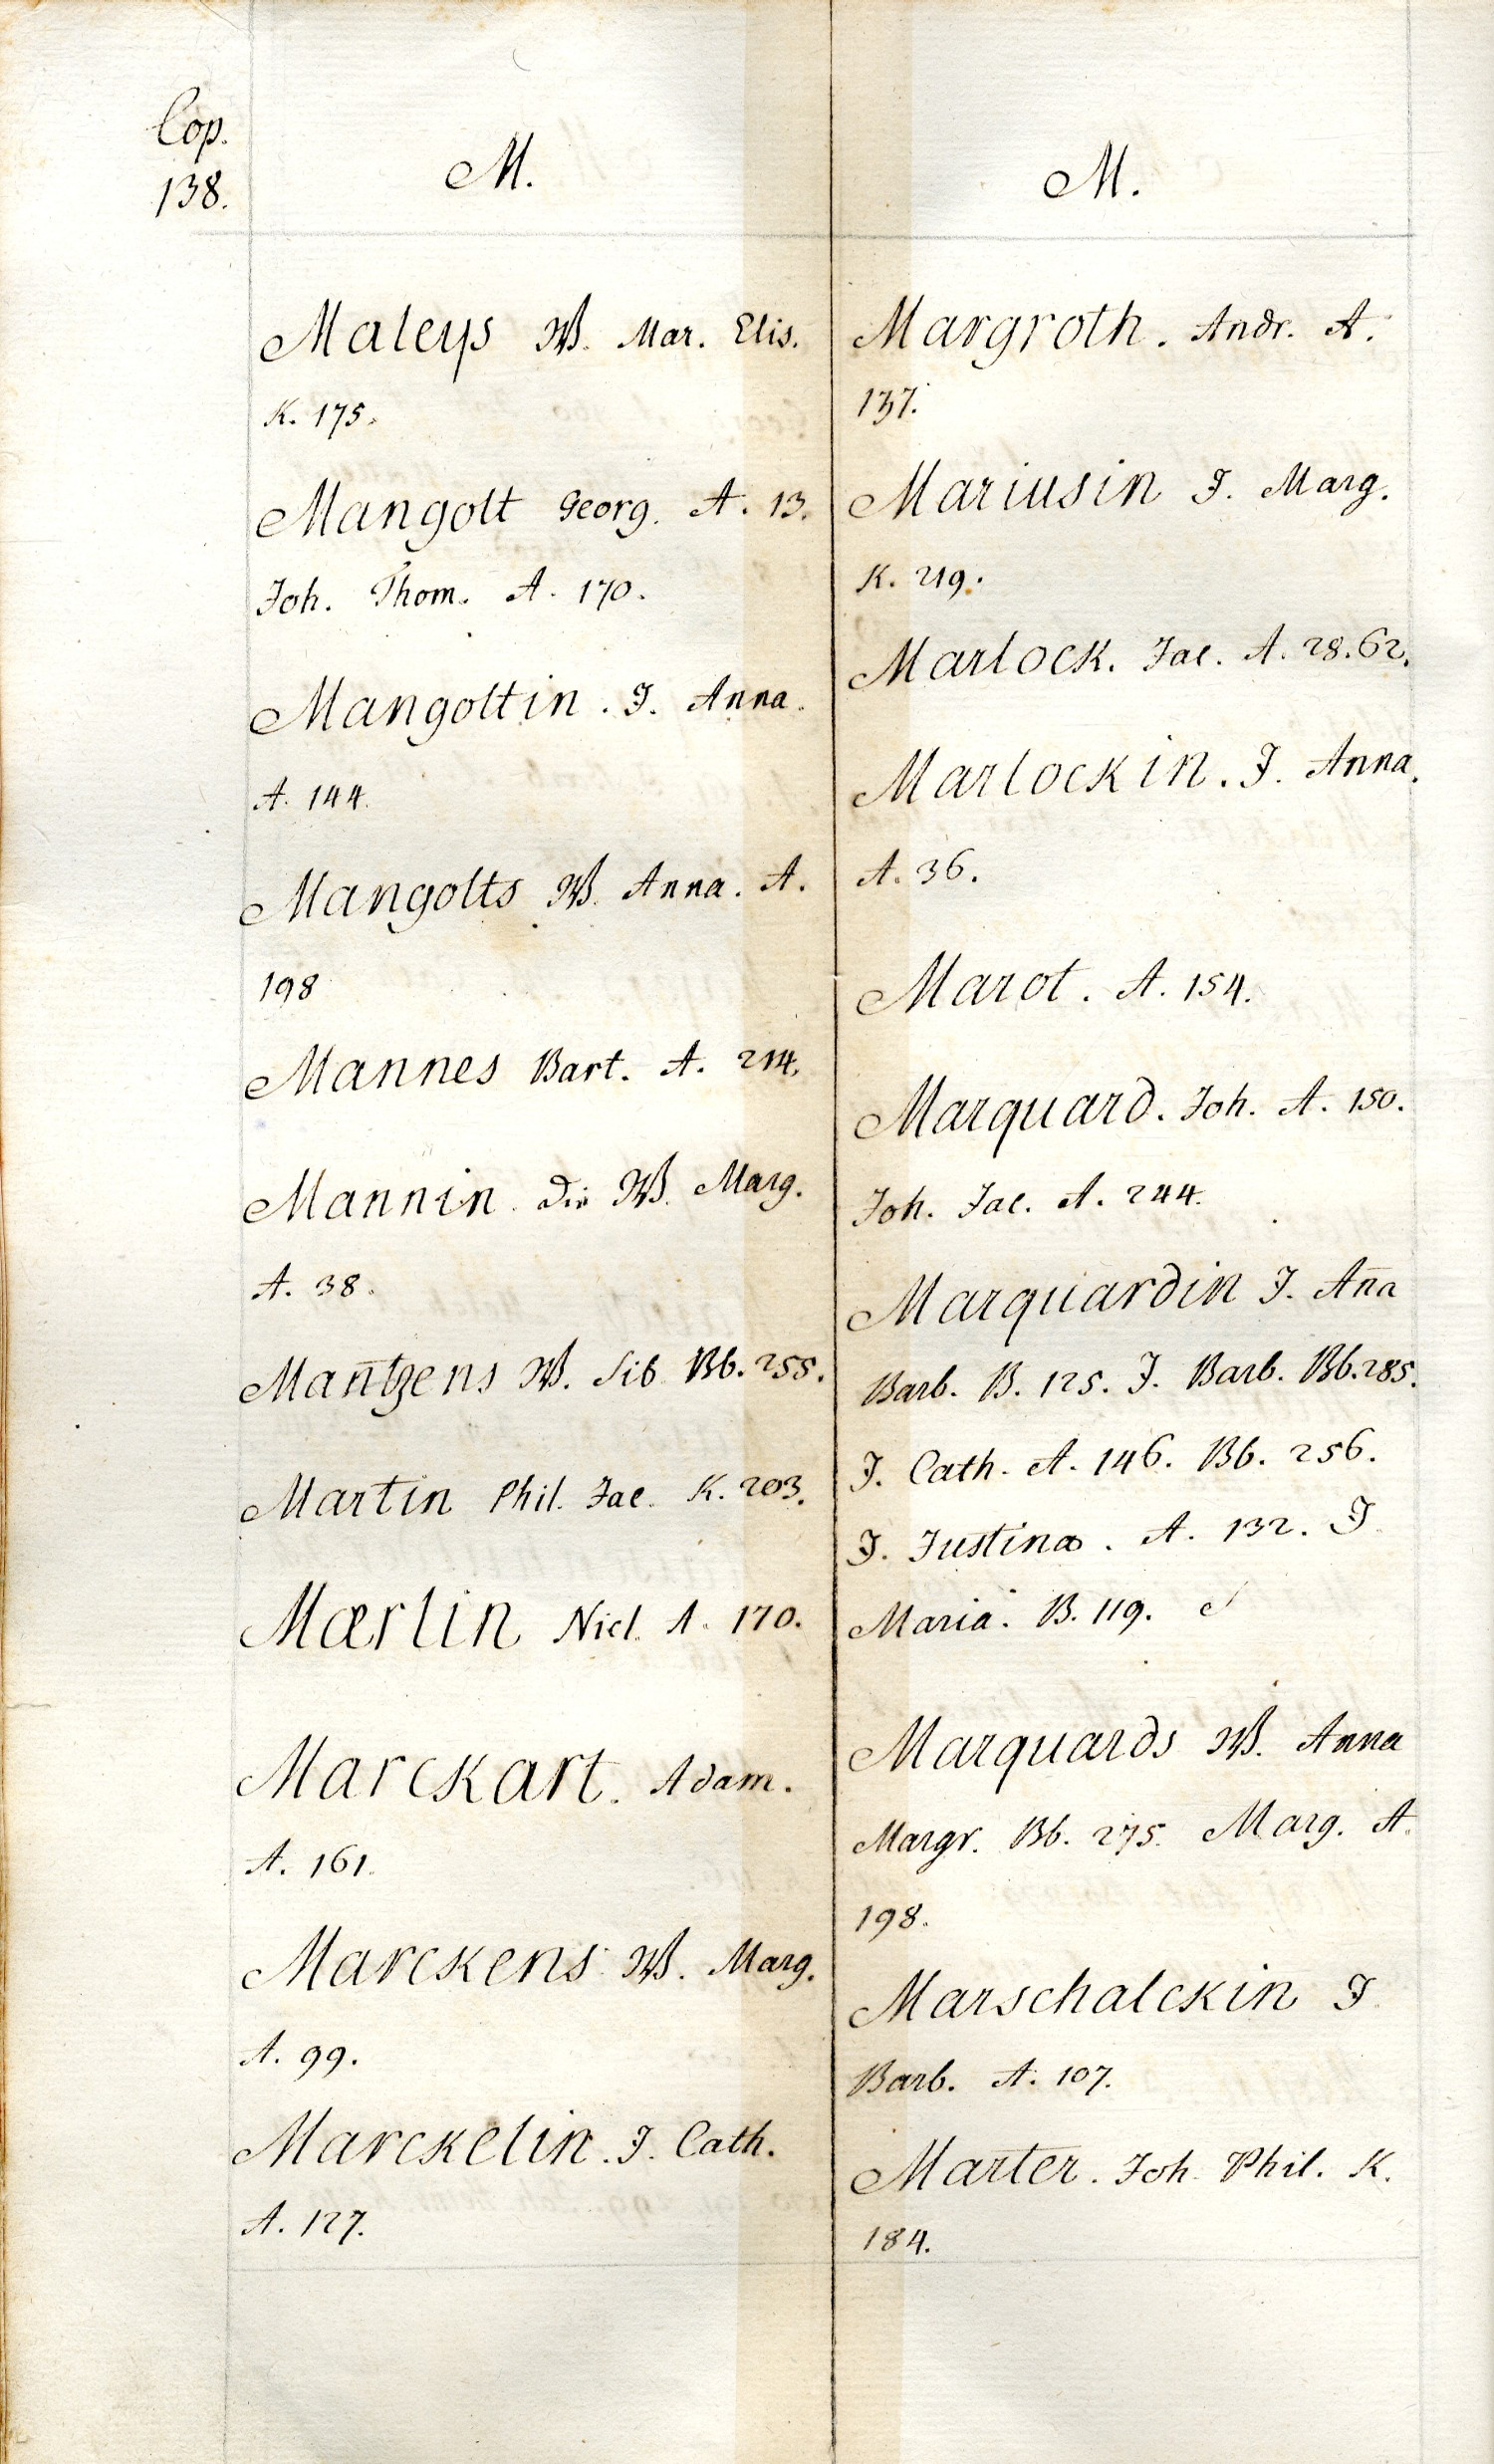 Cop.
138.
M.
Maleys W. Mar. Elis.
K. 175.
Mangolt Georg. A. 13.
Joh. Thom. A. 170.
Mangoltin. J. Anna.
A. 144.
Mangolts W. Anna. A.
198
Mannes Bart. A. 214.
Mannin. Die W. Marg.
A. 38.
Man̄tzens W. Sib. Bb. 255.
Martin Phil. Jac. K. 203.
Mærlin Nicl. A. 170.
Marckart. Adam.
A. 161.
Marckens W. Marg.
A. 99.
Marckelin. J. Cath.
A. 127.
M.
Margroth. Andr. A.
137.
Mariusin J. Marg.
K. 219.
Marlock. Jac. A. 28. 62.
Marlockin. J. Anna.
A. 36.
Marot. A. 154.
Marquard. Joh. A. 150.
Joh. Jac. A. 244.
Marquardin J. An̄a
Barb. B. 125. J. Barb. Bb. 285.
J. Cath. A. 146. Bb. 256.
J. Justina. A. 132. J.
Maria. B. 119.
Marquards W. Anna
Margr. Bb. 275. Marg. A.
198.
Marschalckin J.
Barb. A. 107.
Marter. Joh. Phil. K.
184.